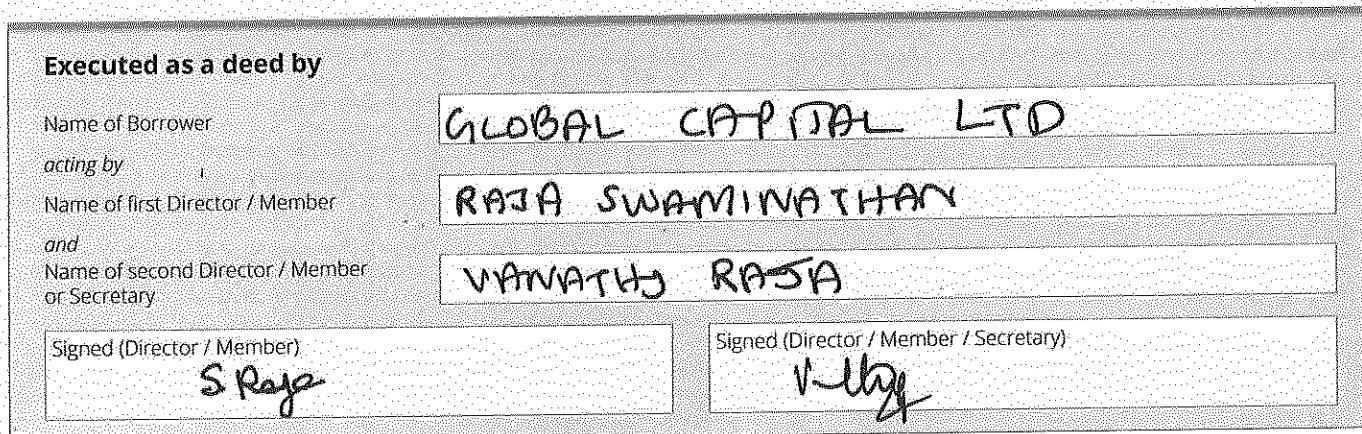 Executed as a deed by
Name of Borrower GLOBAL CAPITAL LTD
acting by
Name of first Director / Member RAJA SWAMINATHAN
and
Name of second Director / Member
or Secretary VANATHY RAJA
Signed (Director / Member) Signed (Director / Member / Secretary)
S Raja